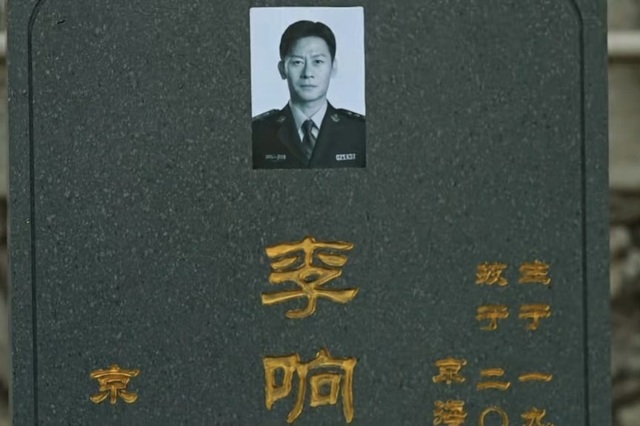 生于一九
故于二〇
京海
李响
京